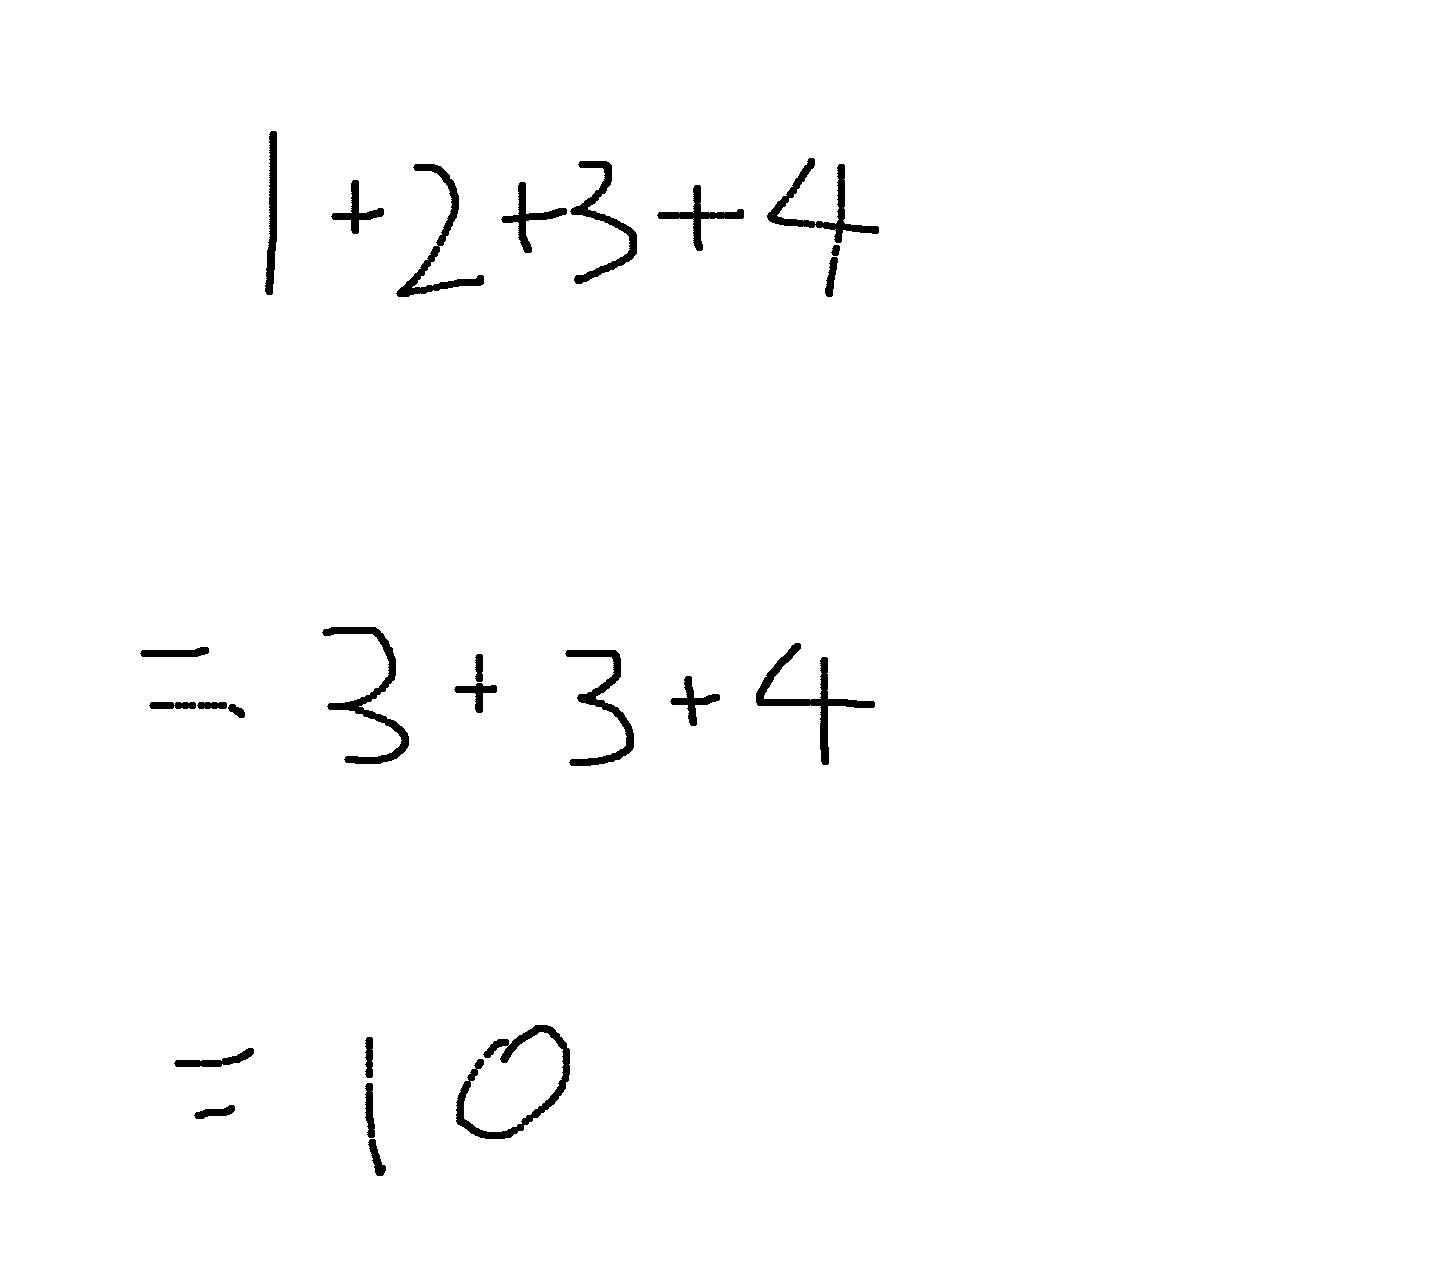 1+2+3+4
=3+3+4
=10